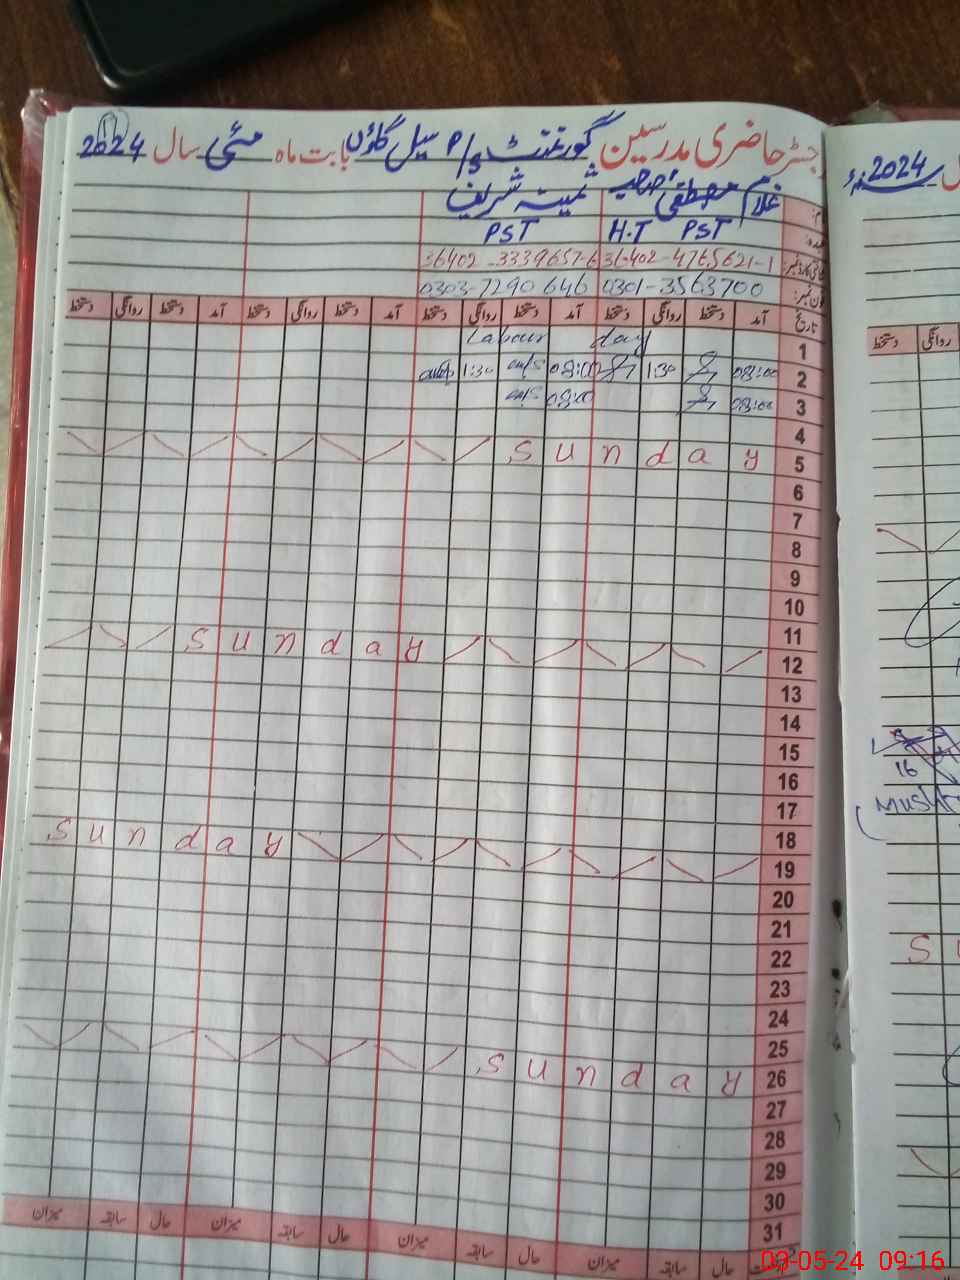 رجسٹر حاضری مدرسین گورنمنٹ P/S سیل گاؤں بابت ماہ مئی سال 2024
غلام مصطفیٰ ثمینہ شریف
H.T PST PST
36402-4765621-1 36402-3339657-6
0301-3563700 0303-7290646
تاریخ آمد دستخط روانگی دستخط آمد دستخط روانگی دستخط آمد دستخط روانگی دستخط آمد دستخط روانگی دستخط
1 Labour day
2 08:00 1:30 08:00 1:30
3 08:00 08:00
4
5 Sunday
6
7
8
9
10
11
12 Sunday
13
14
15
16
17
18
19 Sunday
20
21
22
23
24
25
26 Sunday
27
28
29
30
31
حال سابقہ میزان حال سابقہ میزان حال سابقہ میزان حال سابقہ میزان
2024
روانگی دستخط
16
S
03-05-24 09:16